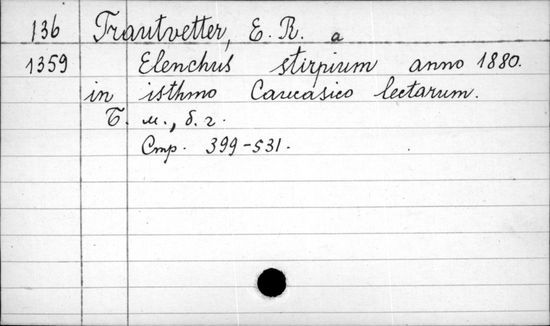 136 Trautvetter, E. R. a
1359 Elenchus stirpium anno 1880.
in isthmo Caucasico lectarum.
Б. м., б. г.
Стр. 399-531.